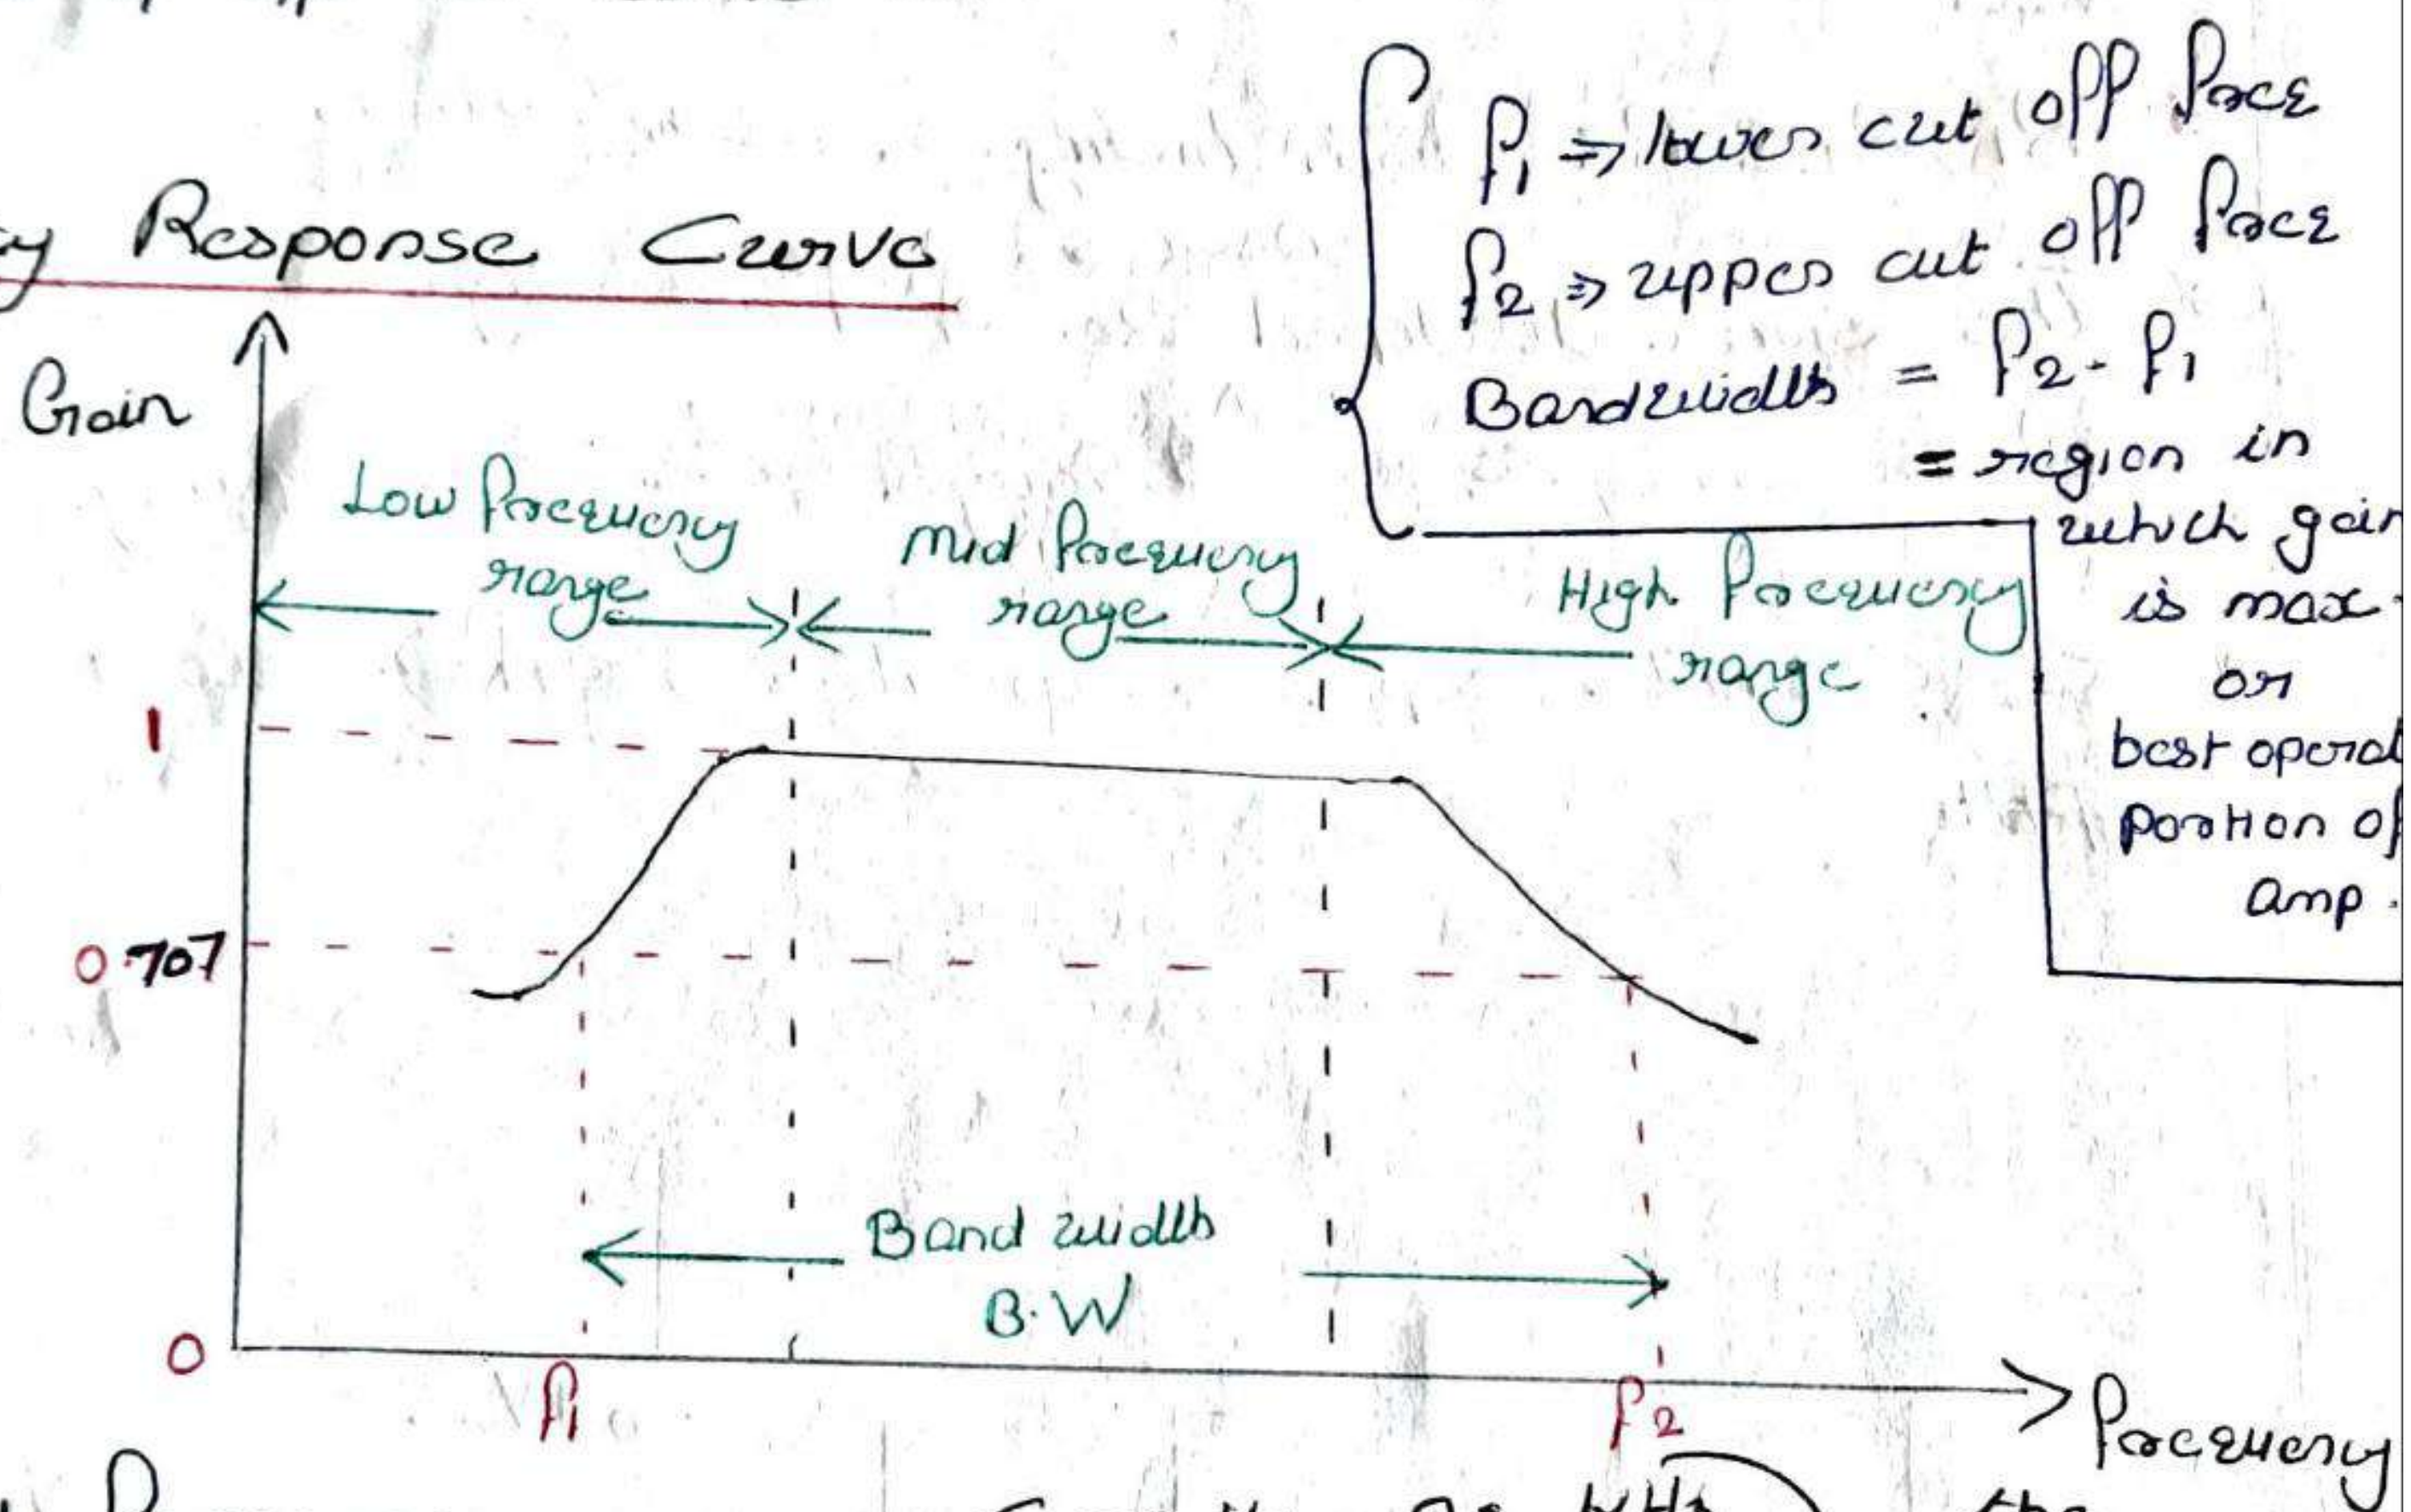 y Response Curve
f1 ⇒ lower cut off freq
f2 ⇒ upper cut off freq
Bandwidth = f2 - f1
= region in
which gain
is max.
or
best operat
portion of
amp.
Gain
Low frequency
range
Mid frequency
range
High frequency
range
1
0.707
Band width
B.W
0
f1
f2
frequency